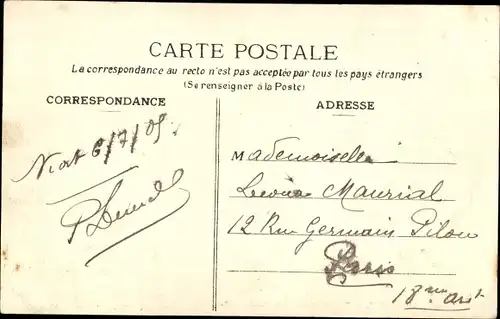 CARTE POSTALE
La correspondance au recto n'est pas acceptée par tous les pays étrangers
(Se renseigner à la Poste)
CORRESPONDANCE
ADRESSE
Niort 6/7/05
Mademoiselle
Maurial
12 Rue Germain Pilon
Paris
18me arrt